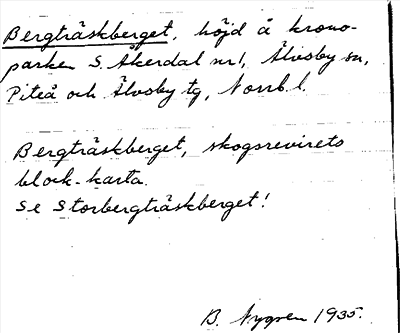 Bergträskberget, höjd å krono-
parken S. Åkerdal nr 1, Älvsby sn,
Piteå och Älvsby tg, Norrb. l.
Bergträskberget, skogsrevirets
block-karta.
Se Storbergträskberget!
B. Nygren 1935.